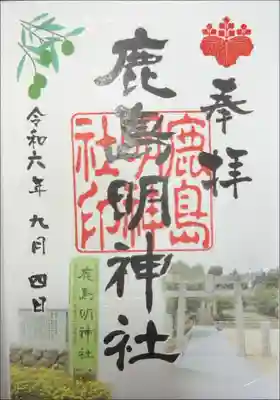 奉拝
鹿島明神社
鹿島
明神
社印
令和六年九月四日
鹿島明神社